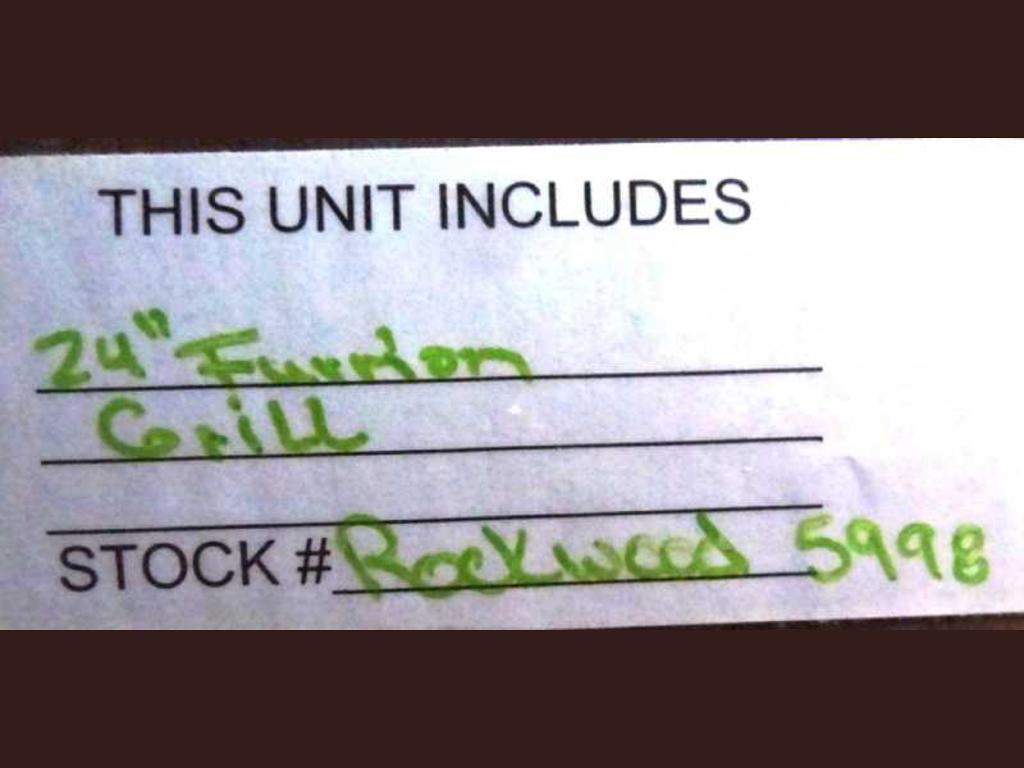 THIS UNIT INCLUDES
24" Furrion
Grill
STOCK # Rockwood 5998